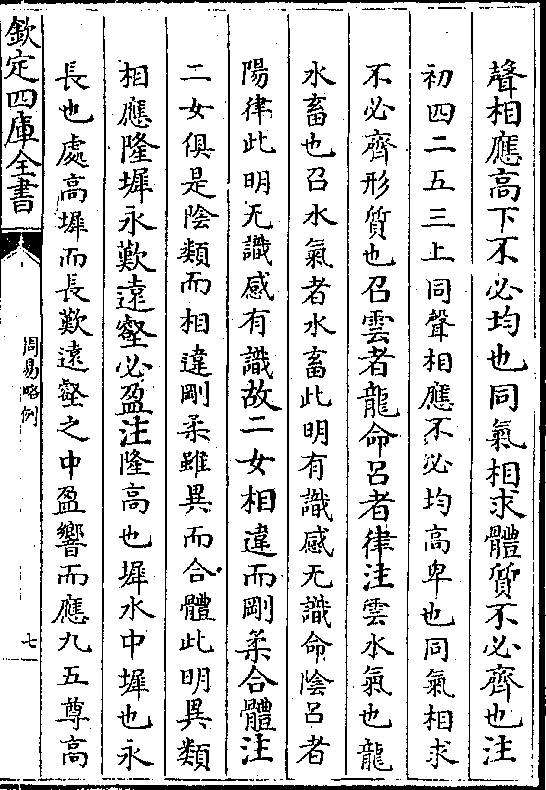 聲相應高下不必均也同氣相求體質不必齊也注
初四二五三上同聲相應不必均高卑也同氣相求
不必齊形質也召雲者龍命呂者律注雲水氣也龍
水畜也召水氣者水畜此明有識感无識命隂呂者
陽律此明无識感有識故二女相違而剛柔合體注
二女俱是隂類而相違剛柔雖異而合體此明異類
相應隆墀永歎遠壑必盈注隆髙也墀水中墀也永
長也處高墀而長歎遠壑之中盈響而應九五尊高
欽定四庫全書
周易略例
七